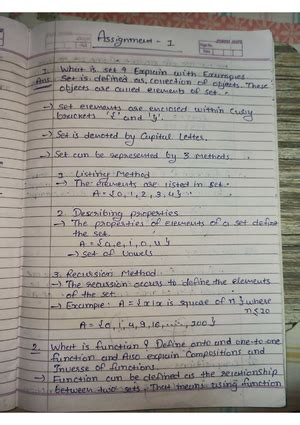 Assignment - 1
1. What is set ? Explain with Examples
Ans Set is defined as, collection of objects. These
objects are called elements of set.
→ Set elements are enclosed within Curly
brackets '{' and '}'.
→ Set is denoted by Capital Letter.
→ Set can be represented by 3 methods
1. Listing Method
→ The elements are listed in set.
A = {0, 1, 2, 3, 4}
2. Describing properties
→ The properties of elements of a set define
the set.
A = {a, e, i, o, u}
→ set of vowels
3. Recursion Method
→ The recursion occurs to define the elements
of the set.
→ Example: A = {x | x is square of n} where
n ≤ 20
A = {0, 1, 4, 9, 16, ..., 200}
2. What is function ? Define onto and one-to-one
function and Also explain Compositions and
Inverse of functions.
→ Function can be defined as the relationship
between two sets. That means using function